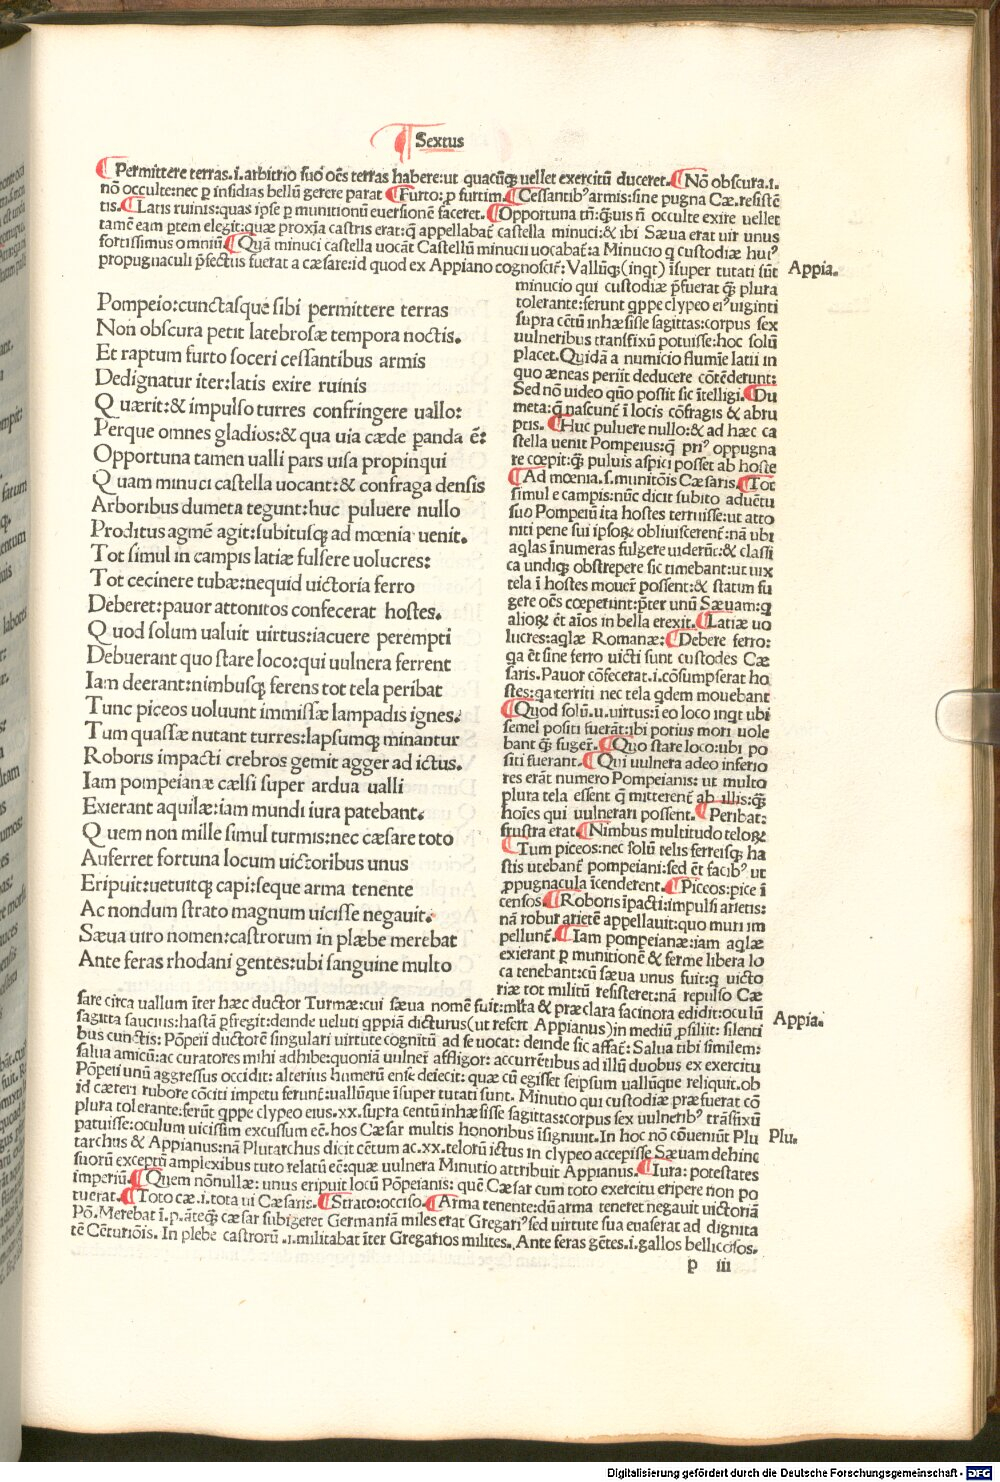 ¶ Sextus
¶ Permittere terras.i.arbitrio suo oēs terras habere:ut quacūq; uellet exercitū duceret.¶ Nō obscura.i.
nō occulte:nec p insidias bellū gerere parat ¶ Furto:p furtim.¶ Cessantibꝰ armis:sine pugna Cæ.resistē
tis.¶ Latis ruinis:quas ipse p munitionū euersionē faceret.¶ Opportuna tn̄:q̄uis n̄ occulte exire uellet
tamē eam ptem elegit:quæ proxīa castris erat:q̄ appellabat̄ castella minuci:& ibi Sæua erat uir unus
fortissimus omniū¶ Quā minuci castella uocāt Castellū minucii uocabat̄:a Minucio q custodiæ huiꝰ
propugnaculi p̄fectus fuerat a cæsare:id quod ex Appiano cognoscit̄:Vallūq;(inqt) īsuper tutati sūt
Appia.
minucio qui custodiæ p̄fuerat q; plura
tolerante:ferunt qppe clypeo eiꝰ uiginti
supra cētū inhæsisse sagittas:corpus sex
uulneribus transfixū potuisse:hoc solū
placet.Quidā a numicio flumīe latii in
quo æneas periit deducere cōtēderunt:
Sed nō uideo quō possit sic ītelligi.¶ Du
meta:q̄ nascunt̄ ī locis cōfragis & abru
ptis.¶ Huc puluere nullo:& ad hæc ca
stella uenit Pompeius:q̄ priꝰ oppugna
re cœpit:q; puluis aspici posset ab hoste
¶ Ad mœnia.s.munitōis Cæsaris.¶ Tot
simul e campis:nūc dicit subito aduētu
suo Pompeiū ita hostes terruisse:ut atto
niti pene sui ipsoꝝ obliuiscerent̄:nā ubi
aqlas īnumeras fulgere uiderūt:& classi
ca undiq; obstrepere sic timebant:ut uix
tela ī hostes mouer̄ possent:& statim fu
gere oēs cœperunt:p̄ter unū Sæuam:q
alioꝝ ēt aīos in bella erexit.¶ Latiæ uo
lucres:aqlæ Romanæ:¶ Debere ferro:
qa ēt sine ferro uicti sunt custodes Cæ
saris.Pauor cōfecerat.i.cōsumpserat ho
stes:qa territi nec tela qdem mouebant
¶ Quod solū.u.uirtus:ī eo loco inqt ubi
semel positi fuerāt:ibi potius mori uole
bant q; fuger̄.¶ Quo stare loco:ubi po
siti fuerant.¶ Qui uulnera adeo inferio
res erāt numero Pompeianis: ut multo
plura tela essent q̄ mitterent̄ ab illis:q;
hoīes qui uulnerari possent.¶ Peribat:
frustra erat¶ Nimbus multitudo teloꝝ
¶ Tum piceos:nec solū telis ferreisq; ha
stis utebant̄ pompeiani:sed ēt facibꝰ ut
ppugnacula īcenderent.¶ Piceos:pice ī
censos.¶ Roboris īpacti:impulsi arietis:
nā robur arietē appellauit:quo muri im
pellunt̄.¶ Iam pompeianæ:iam aqlæ
exierant p munitionē & ferme libera lo
ca tenebant:cū sæua unus fuit:q uicto
riæ tot militū resisteret:nā repulso Cæ
Pompeio:cunctasque sibi permittere terras
Non obscura petit latebrosæ tempora noctis.
Et raptum furto soceri cessantibus armis
Dedignatur iter:latis exire ruinis
Quærit:& impulso turres confringere uallo:
Perque omnes gladios:& qua uia cæde panda ē:
Opportuna tamen ualli pars uisa propinqui
Quam minuci castella uocant:& confraga densis
Arboribus dumeta tegunt:huc puluere nullo
Proditus agmē agit:subitusq; ad mœnia uenit.
Tot simul in campis latiæ fulsere uolucres:
Tot cecinere tubæ:nequid uictoria ferro
Deberet:pauor attonitos confecerat hostes.
Quod solum ualuit uirtus:iacuere perempti
Debuerant quo stare loco:qui uulnera ferrent
Iam deerant:nimbusq; ferens tot tela peribat
Tunc piceos uoluunt immissæ lampadis ignes.
Tum quassæ nutant turres:lapsumq; minantur
Roboris impacti crebros gemit agger ad ictus.
Iam pompeianæ cælsi super ardua ualli
Exierant aquilæ:iam mundi iura patebant.
Quem non mille simul turmis:nec cæsare toto
Auferret fortuna locum uictoribus unus
Eripuit:uetuitq; capi:seque arma tenente
Ac nondum strato magnum uicisse negauit.
Sæua uiro nomen:castrorum in plæbe merebat
Ante feras rhodani gentes:ubi sanguine multo
sare circa uallum īter hæc ductor Turmæ:cui sæua nomē fuit:mlta & præclara facinora edidit:oculū
sagitta saucius:hastā pfregit:deinde ueluti qppiā dicturus(ut refert Appianus)in mediū psiliit: silenti
Appia.
bus cunctis: Pōpeii ductorē singulari uirtute cognitū ad se uocat: deinde sic affat̄: Salua tibi similem:
salua amicū:ac curatores mihi adhibe:quoniā uulneī affligor: accurrētibus ad illū duobus ex exercitu
Pōpeii unū aggressus occidit: alterius humerū ense deiecit: quæ cū egisset seipsum uallūque reliquit.ob
id cæteri rubore cōciti impetu ferunt̄:uallūque īsuper tutati sunt. Minutio qui custodiæ præfuerat cō
plura tolerante:ferūt qppe clypeo eius.xx.supra centū inhæsisse sagittas:corpus sex uulneribꝰ trāsfixū
patuisse:oculum uicissim excussum eē.hos Cæsar multis honoribus īsigniuit.In hoc nō cōueniūt Plu
Plu.
tarchus & Appianus:nā Plutarchus dicit cētum ac.xx.telorū ictus in clypeo accepisse Sæuam dehinc
suorū exceptū amplexibus tuto relatū eē:quæ uulnera Minutio attribuit Appianus.¶ Iura: potestates
imperiū.¶ Quem nōnullæ: unus eripuit locū Pōpeianis: quē Cæsar cum toto exercitu eripere non po
tuerat.¶ Toto cæ.i.tota ui Cæsaris.¶ Strato:occiso.¶ Arma tenente:dū arma teneret negauit uictoriā
Pō.Merebat ī.p.āteq; cæsar subigeret Germaniā miles erat Gregariꝰ sed uirtute sua euaserat ad dignita
tē Cēturiōis. In plebe castrorū .i.militabat īter Gregarios milites. Ante feras gētes.i.gallos bellicosos.
p iii
Digitalisierung gefördert durch die Deutsche Forschungsgemeinschaft - DFG